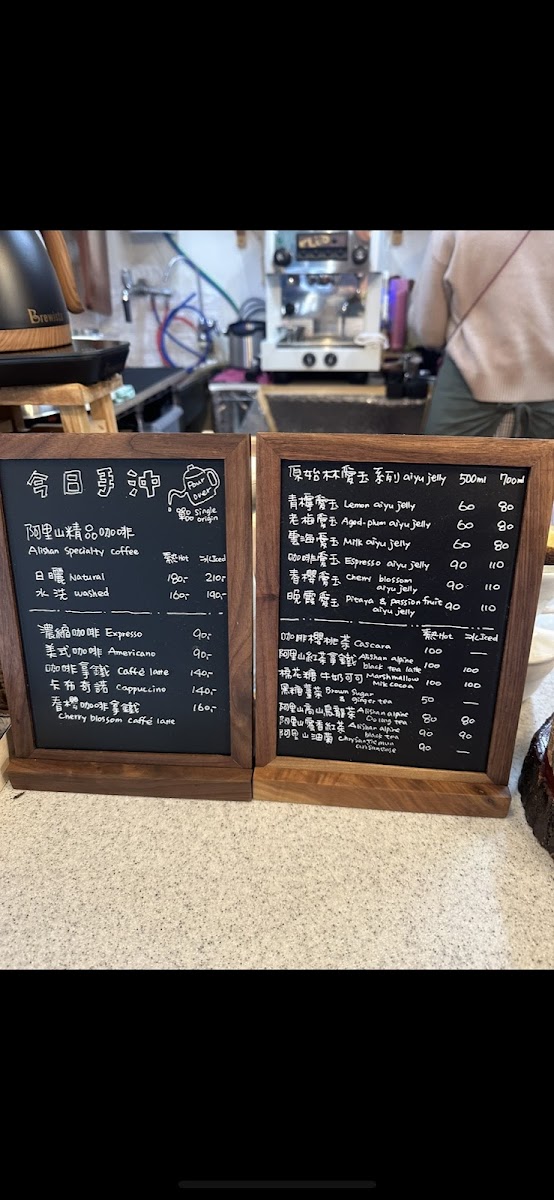 Brewista
今日手沖
Pour over
單品 single origin
阿里山精品咖啡
Alishan Specialty coffee
熱Hot 冰Iced
日曬 Natural 180.- 210.-
水洗 washed 160.- 190.-
濃縮咖啡 Expresso 90.-
美式咖啡 Americano 90.-
咖啡拿鐵 Caffé latte 140.-
卡布奇諾 Cappuccino 140.-
春櫻咖啡拿鐵 160.-
Cherry blossom caffé latte
原始林愛玉系列 aiyu jelly 500ml 700ml
青檸愛玉 Lemon aiyu jelly 60 80
老梅愛玉 Aged-plum aiyu jelly 60 80
雲海愛玉 Milk aiyu jelly 60 80
咖啡愛玉 Espresso aiyu jelly 90 110
春櫻愛玉 Cherry blossom aiyu jelly 90 110
晚霞愛玉 Pitaya & passion fruit aiyu jelly 90 110
熱Hot 冰Iced
咖啡櫻桃茶 Cascara 100 —
阿里山紅茶拿鐵 Alishan alpine black tea latte 100 100
棉花糖牛奶可可 Marshmallow Milk cocoa 100 100
黑糖薑茶 Brown Sugar & ginger tea 50 —
阿里山高山烏龍茶 Alishan alpine Oolong tea 80 80
阿里山蜜香紅茶 Alishan alpine black tea 90 90
阿里山油菊 Chrysanthemum 90 —